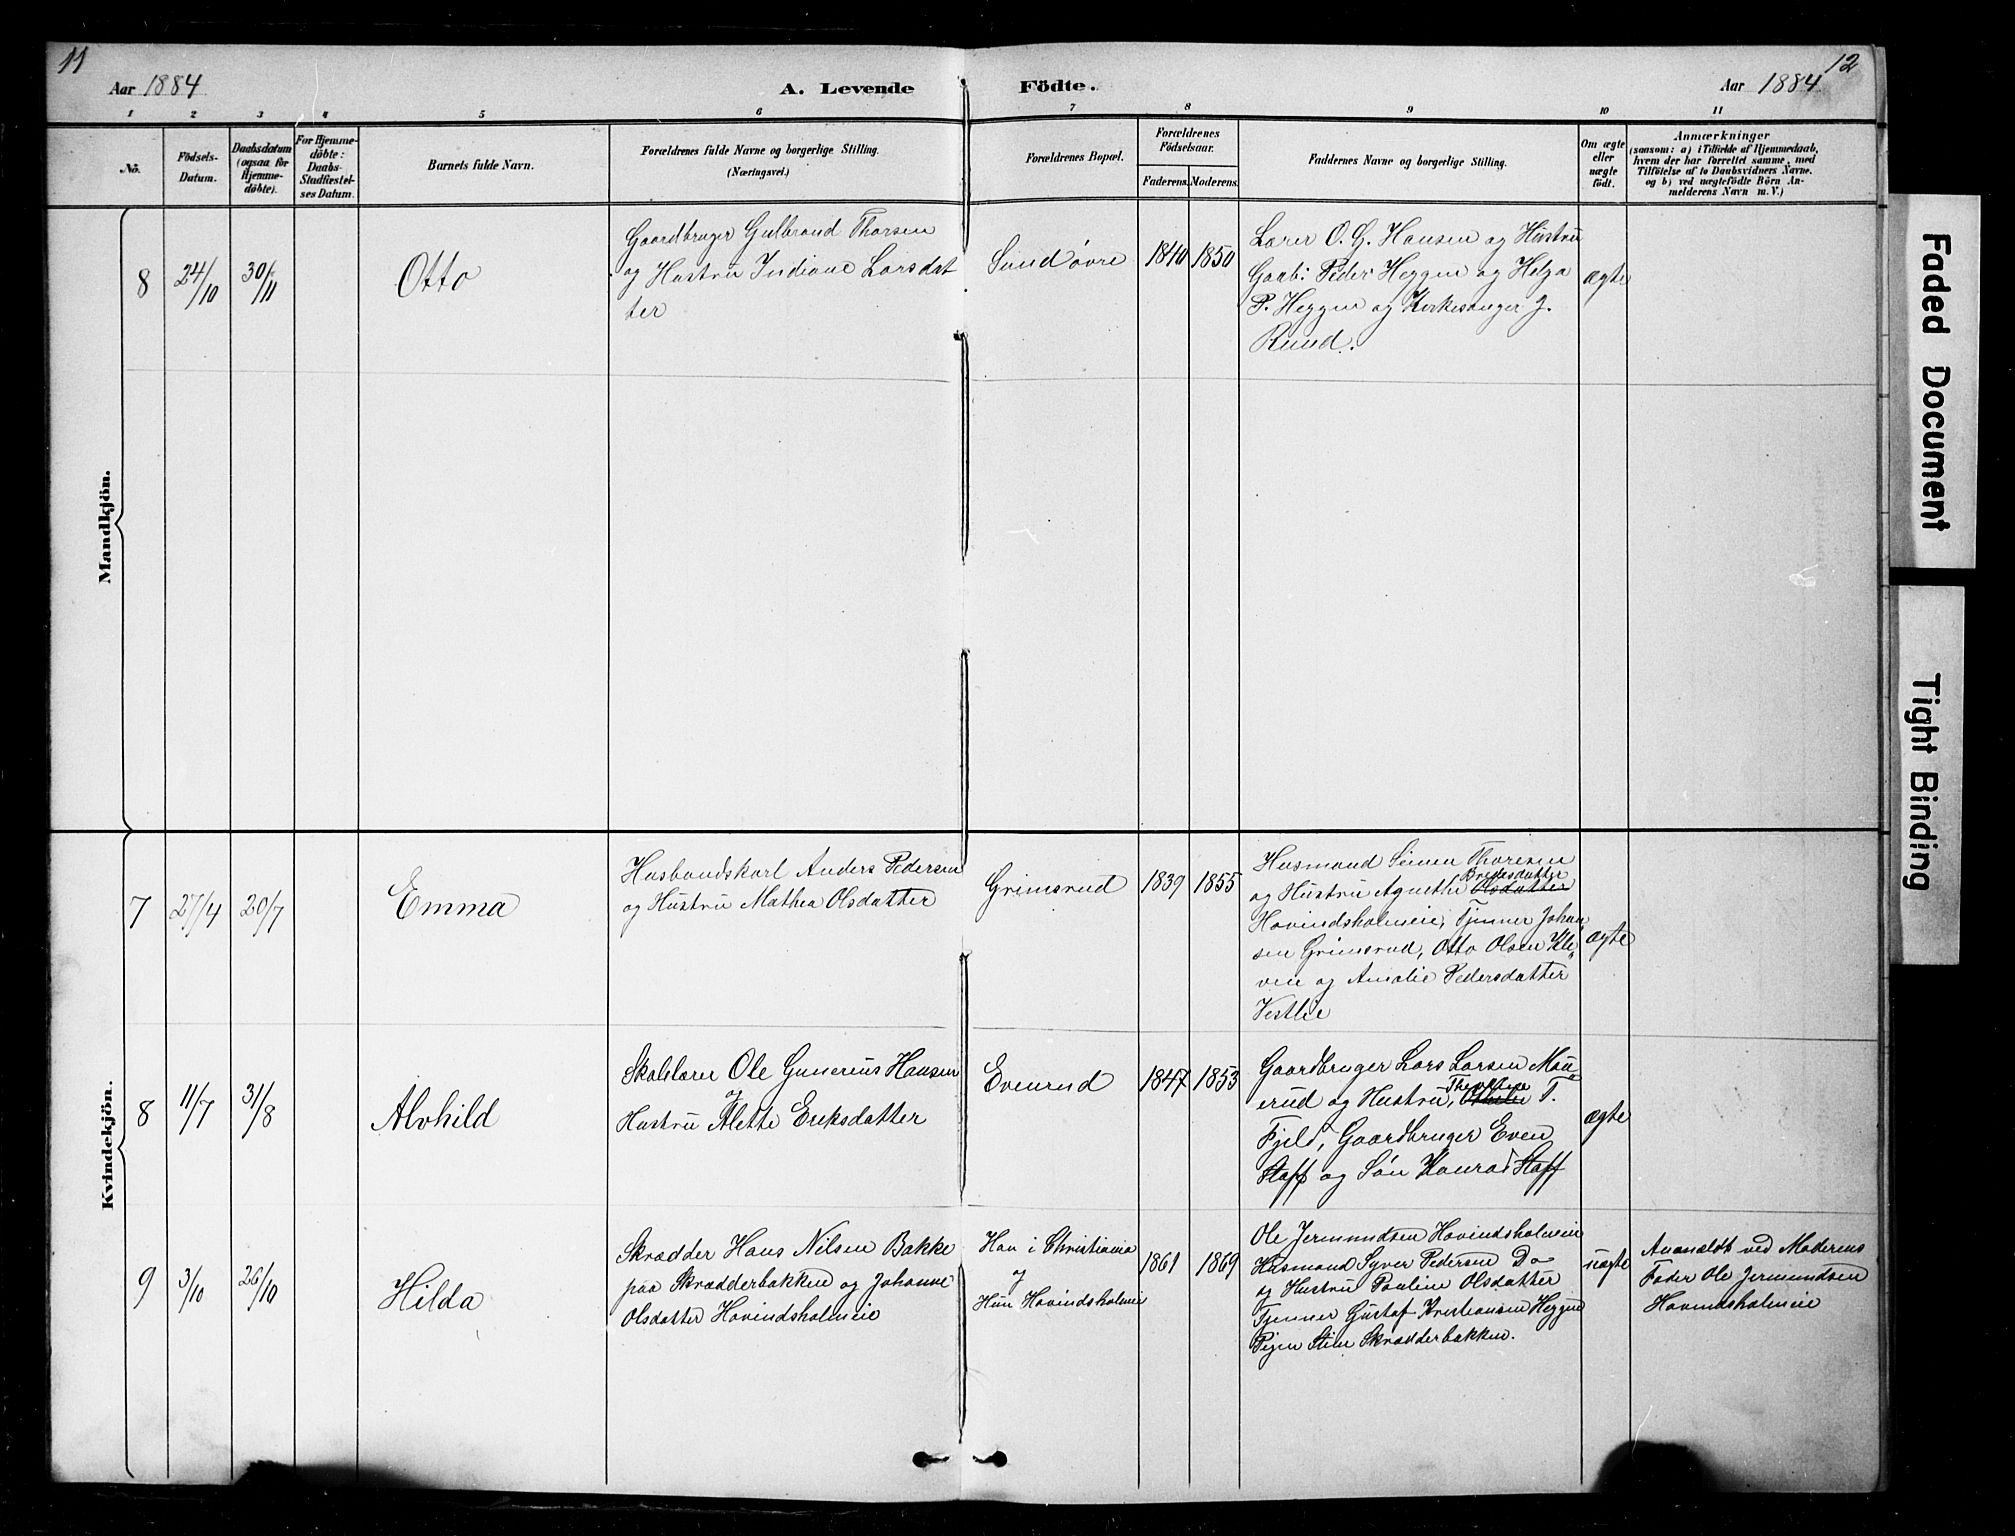 11
Aar 1884
A. Levende Födte.
Aar 1884
12
1 2 3 4 5 6 7 8 9 10 11
No.
Födsels-
Datum.
Daabsdatum
(ogsaa for
Hjemme-
döbte).
For Hjemme-
döbte:
Daabs-
Stadfæstel-
ses Datum.
Barnets fulde Navn.
Forældrenes fulde Navne og borgerlige Stilling.
(Næringsvei.)
Forældrenes Bopæl.
Forældrenes
Födselsaar.
Faderens. Moderens.
Faddernes Navne og borgerlige Stilling.
Om ægte
eller
uægte
födt.
Anmærkninger
(saasom: a) i Tilfælde af Hjemmedaab,
hvem der har forrettet samme, med
Tilföielse af to Daabsvidners Navne.
og b) ved uægtefödte Börn An-
melderens Navn m. V.)
Mandkjön.
8
24/10
30/11
Otto
Gaardbruger Gulbrand Thorsen
og Hustru Indiane Larsdat
ter
Sund øvre
1840
1850
Lærer O. G. Hansen og Hustru
Gaab: Peder Heggen og Helga
P. Heggen og Kirkesanger J.
Ruud.
ægte
Kvindekjön.
7
27/4
20/7
Emma
Husbondskarl Anders Pedersen
og Hustru Mathea Olsdatter
Grimsrud
1839
1855
Husmand Simen Thoresen
og Hustru Agnethe Bredesdatter Olsdatter
Hovindsholmeie, Tjener Johan
sen Grimsrud, Otto Olsen Kle„
ven og Amalie Pedersdatter
Vestlie
ægte
8
11/7
31/8
Alvhild
Skolelærer Ole Gunerius Hansen
og
Hustru Alette Eriksdatter
Evenrud
1847
1853
Gaardbruger Lars Larsen Mau„
erud og Hustru, T.
Fjeld, Gaardbruger Even
Staff og Søn Konrad Staff
ægte
9
3/10
26/10
Hilda
Skrædder Hans Nilsen Bakke
paa Skrædderbakken og Johanne
Olsdatter Hovindsholmeie
Han i Christiania
og
Hun Hovindsholmeie
1861
1869
Ole Jermundsen Hovindsholmeie
Husmand Syver Pedersen Do
og Hustru Pauline Olsdatter
Tjener Gustaf Kristiansen Heggen
Pigen Stine Skrædderbakken.
uægte
Anmeldt ved Moderens
Fader Ole Jermundsen
Hovindsholmeie
Faded Document
Tight Binding